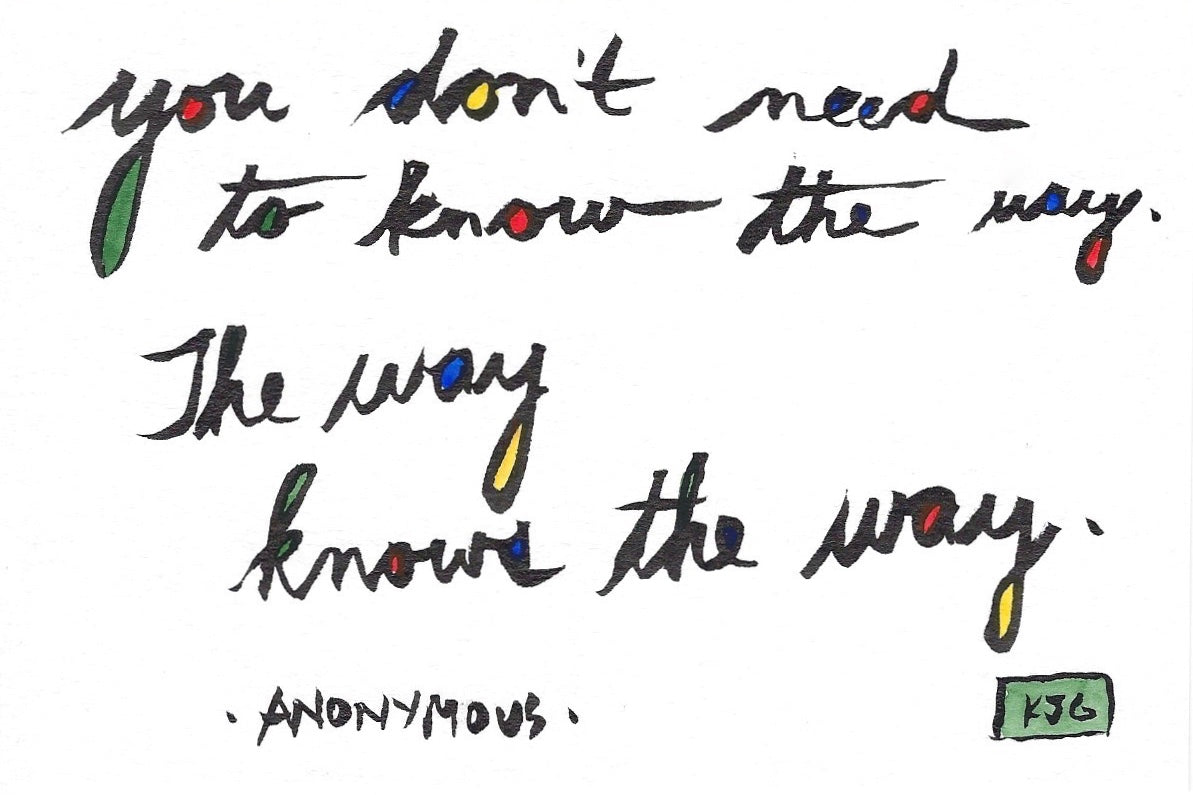 you don't need
to know the way.
The way
knows the way.
· ANONYMOUS ·
KJG